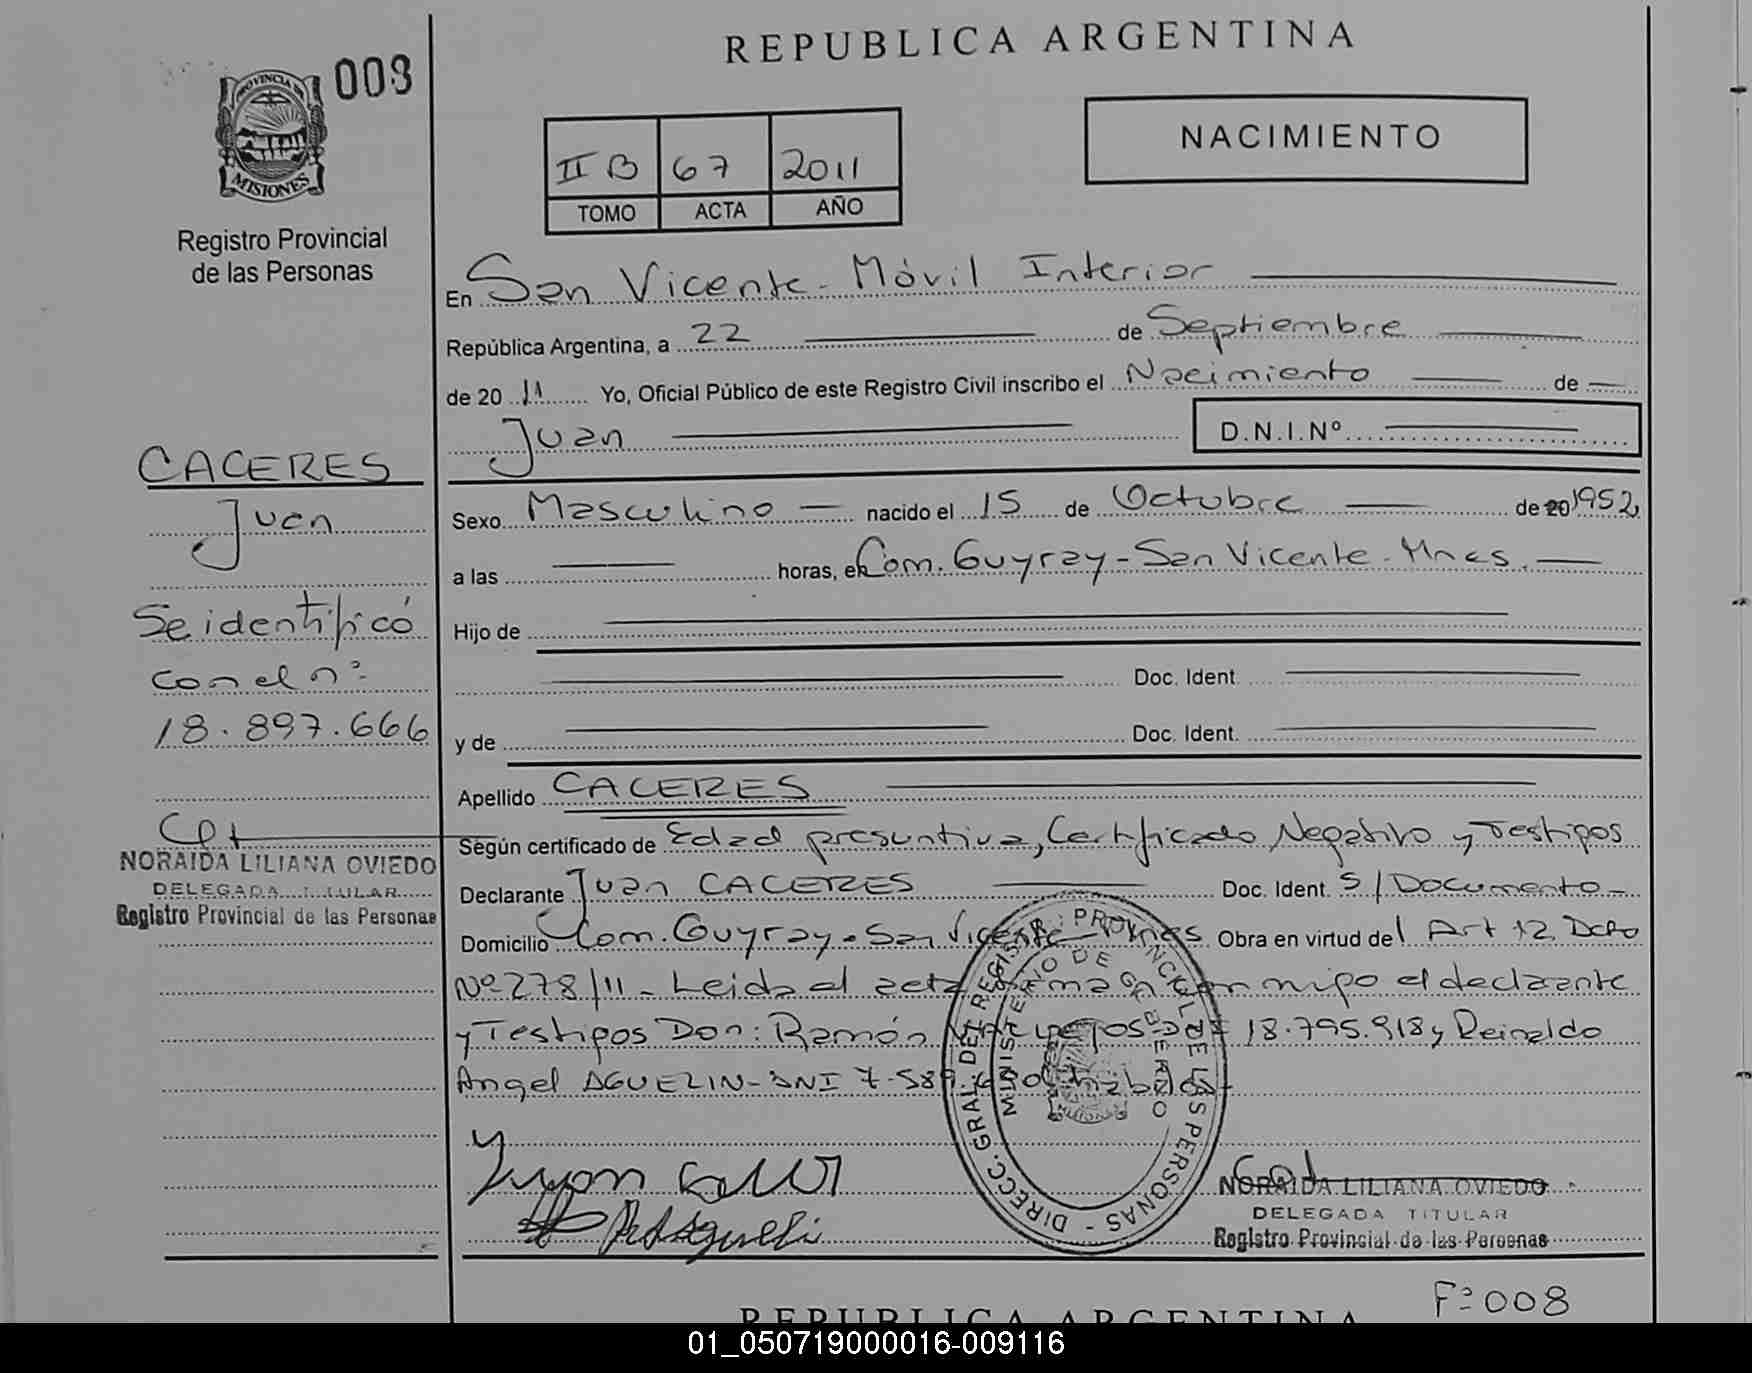 008
REPUBLICA ARGENTINA
PROVINCIA DE
MISIONES
Registro Provincial
de las Personas
II B 67 2011
TOMO ACTA AÑO
NACIMIENTO
En San Vicente - Móvil Interior
República Argentina, a 22 de Septiembre
de 20 11 Yo, Oficial Público de este Registro Civil inscribo el Nacimiento de
Juan D.N.I.Nº
CACERES
Juan
Se identificó
con el nº
18.897.666
Sexo Masculino nacido el 15 de Octubre de 20 1952
a las horas, en Com. Guyray - San Vicente - Mnes.
Hijo de
Doc. Ident.
y de Doc. Ident.
Apellido CACERES
Según certificado de Edad presuntiva, Certificado Negativo y Testigos
Declarante Juan CACERES Doc. Ident. S/Documento
Domicilio Com. Guyray - San Vicente - Mnes Obra en virtud del Art 12 Dcto
Nº 278/11 - Leida el acta firman con migo el declarante
y Testigos Don: Ramón 18.795.918 y Reinaldo
Angel AGUELIN - DNI 7.589.
NORAIDA LILIANA OVIEDO
DELEGADA TITULAR
Registro Provincial de las Personas
DIRECC. GRAL. DEL REGISTRO PROVINCIAL DE LAS PERSONAS
MINISTERIO DE GOBIERNO
NORAIDA LILIANA OVIEDO
DELEGADA TITULAR
Registro Provincial de las Personas
Fº 008
REPUBLICA ARGENTINA
01_050719000016-009116